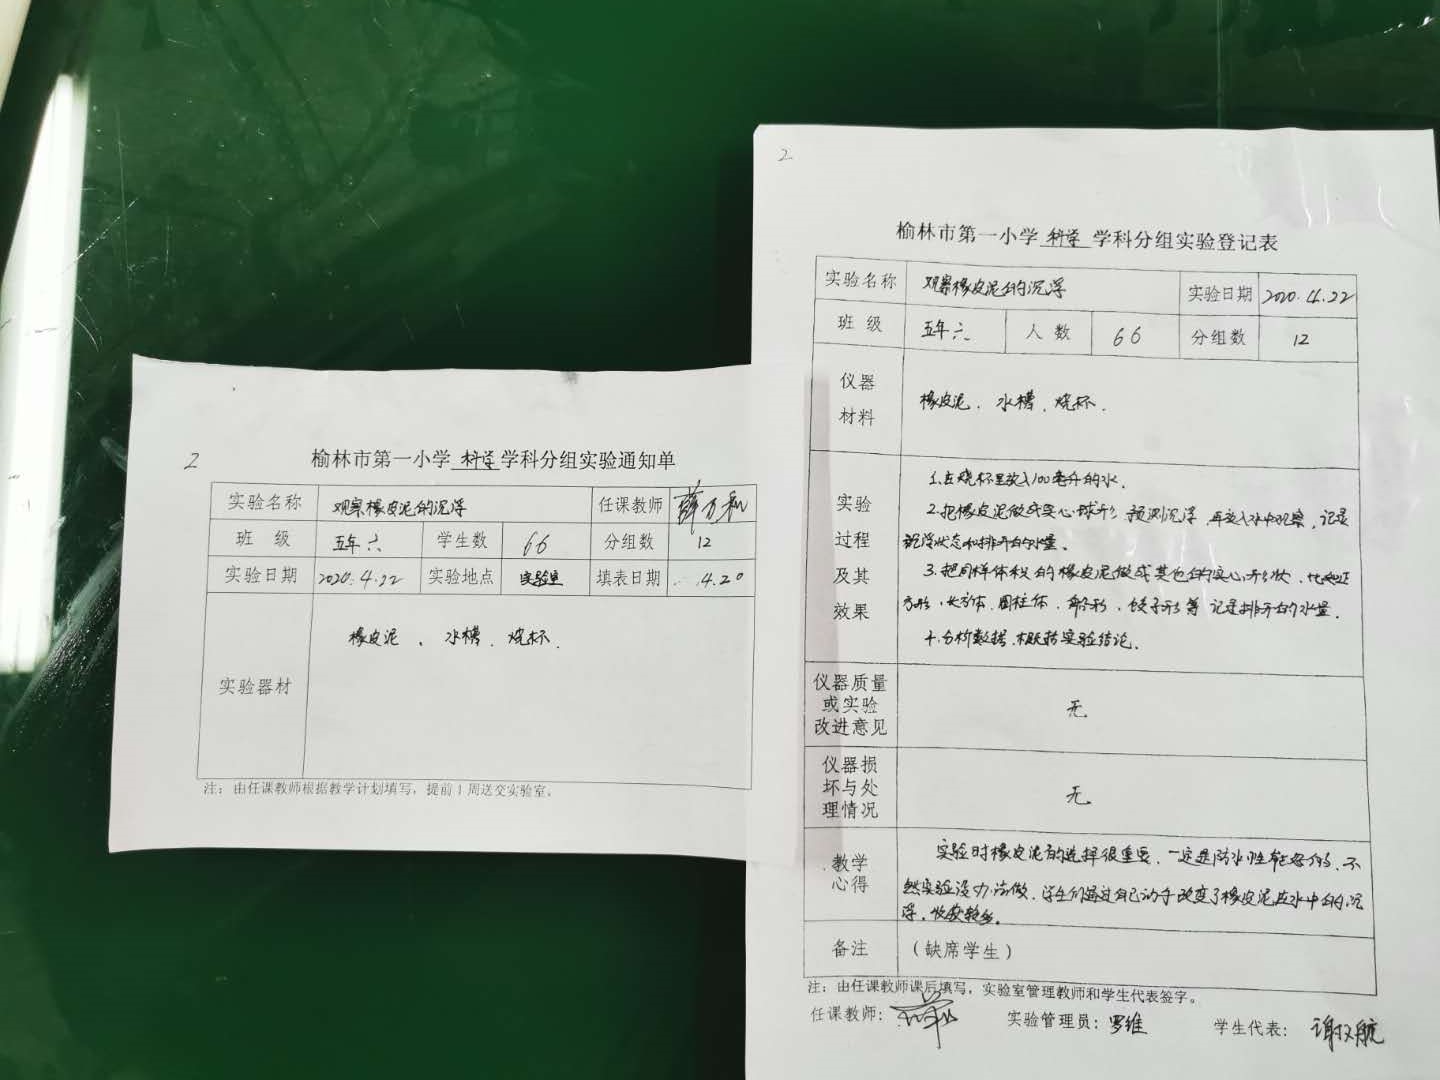 2
榆林市第一小学 科学 学科分组实验通知单
实验名称 观察橡皮泥的沉浮 任课教师
班 级 五年六 学生数 66 分组数 12
实验日期 2020.4.22 实验地点 实验室 填表日期 4.20
实验器材 橡皮泥、水槽、烧杯.
注：由任课教师根据教学计划填写，提前1周送交实验室。
2
榆林市第一小学 科学 学科分组实验登记表
实验名称 观察橡皮泥的沉浮 实验日期 2020.4.22
班 级 五年六 人 数 66 分组数 12
仪器
材料
橡皮泥、水槽、烧杯.
实验
过程
及其
效果
1.在烧杯里放入100毫升的水.
2.把橡皮泥做成实心球形，预测沉浮，再放入水中观察，记录
沉浮状态和排开的水量。
3.把同样体积的橡皮泥做成其他的实心形状，比如正
方形、长方体、圆柱体、船形、饺子形等 记录排开的水量.
4.分析数据.概括实验结论.
仪器质量
或实验
改进意见
无
仪器损
坏与处
理情况
无
教学
心得
实验时橡皮泥的选择很重要、一定是防水性能好的、不
然实验没办法做、学生们通过自己动手改变了橡皮泥在水中的沉
浮，收获较多。
备注 （缺席学生）
注：由任课教师课后填写，实验室管理教师和学生代表签字。
任课教师： 实验管理员：罗维 学生代表：